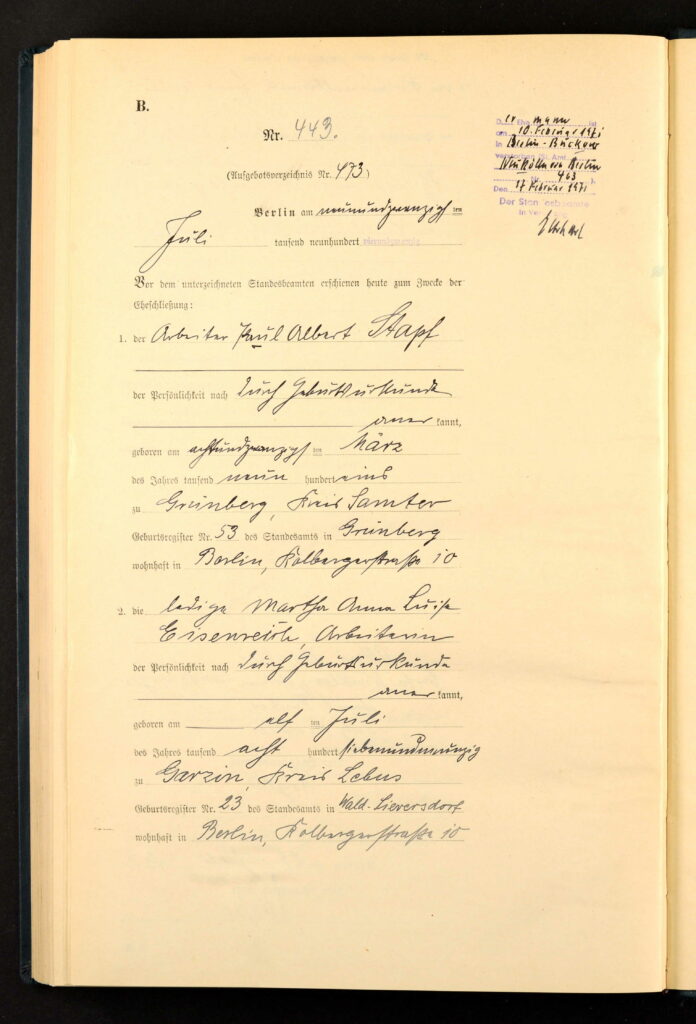 B.
Nr. 443.
(Aufgebotsverzeichnis Nr. 473)
Berlin am neunundzwanzigsten
Juli tausend neunhundert
Vor dem unterzeichneten Standesbeamten erschienen heute zum Zwecke der
Eheschließung:
1. der Arbeiter Paul Albert Stapf
der Persönlichkeit nach durch Geburtsurkunde
anerkannt,
geboren am achtundzwanzigsten März
des Jahres tausend neun hundert eins
zu Grünberg, Kreis Samter
Geburtsregister Nr. 53 des Standesamts in Grünberg
wohnhaft in Berlin, Kolbergerstraße 10
2. die ledige Martha Anna Luise
Eisenreich, Arbeiterin
der Persönlichkeit nach durch Geburtsurkunde
anerkannt,
geboren am elf ten Juli
des Jahres tausend acht hundert siebenundneunzig
zu Garzin, Kreis Lebus
Geburtsregister Nr. 23 des Standesamts in Wald-Sieversdorf
wohnhaft in Berlin, Kolbergerstraße 10
Der Ehemann ist
am 10. Februar 1971
in Berlin-Buckow
verstorben (St. Amt
Neukölln von Berlin
Nr. 463).
Den 17. Februar 1971
Der Standesbeamte
In Vertretung